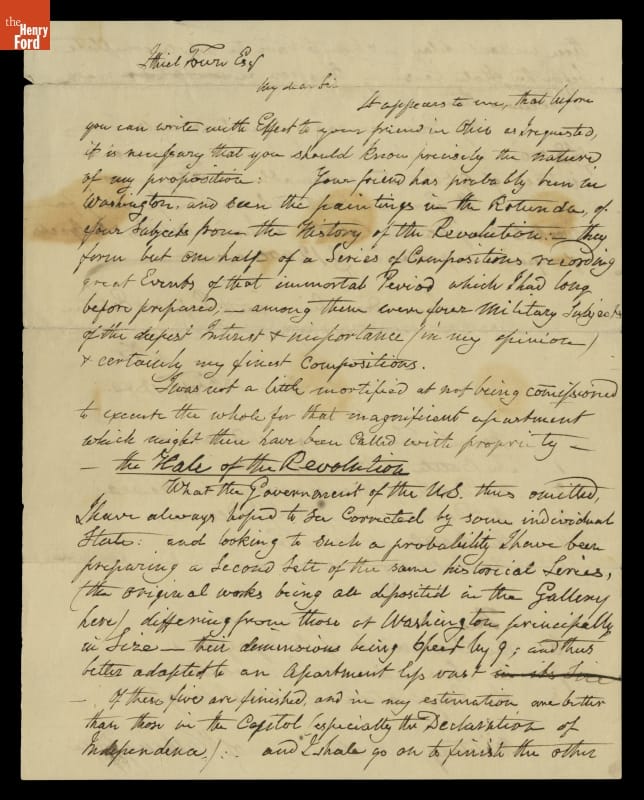 the
Henry
Ford
Ithiel Town Esq
My dear Sir
It appears to me, that before
you can write with Effect to your friend in Ohio as I requested,
it is necessary that you should know precisely the nature
of my proposition: Your friend has probably been in
Washington, and seen the paintings in the Rotunda, of
four Subjects from the History of the Revolution:— they
form but one half of a Series of Compositions recording
great Events of that immortal Period which I had long
before prepared,— among them were four Military Subjects
of the deepest Interest & importance (in my opinion)
& certainly my finest Compositions.
I was not a little mortified at not being comissioned
to execute the whole for that magnificent apartment
which might then have been called with propriety —
— the Hall of the Revolution
What the Government of the U.S. thus omitted,
I have always hoped to see corrected by some individual
State: and looking to such a probability I have been
preparing a Second Sett of the same historical Series,
(the original works being all deposited in the Gallery
here) differing from those at Washington principally
in Size — their dimensions being 6 feet by 9; and thus
better adapted to an Apartment less vast in its Size
— Of these five are finished, and in my estimation are better
than those in the Capitol (especially the Declaration of
Independence.):— and I shall go on to finish the other